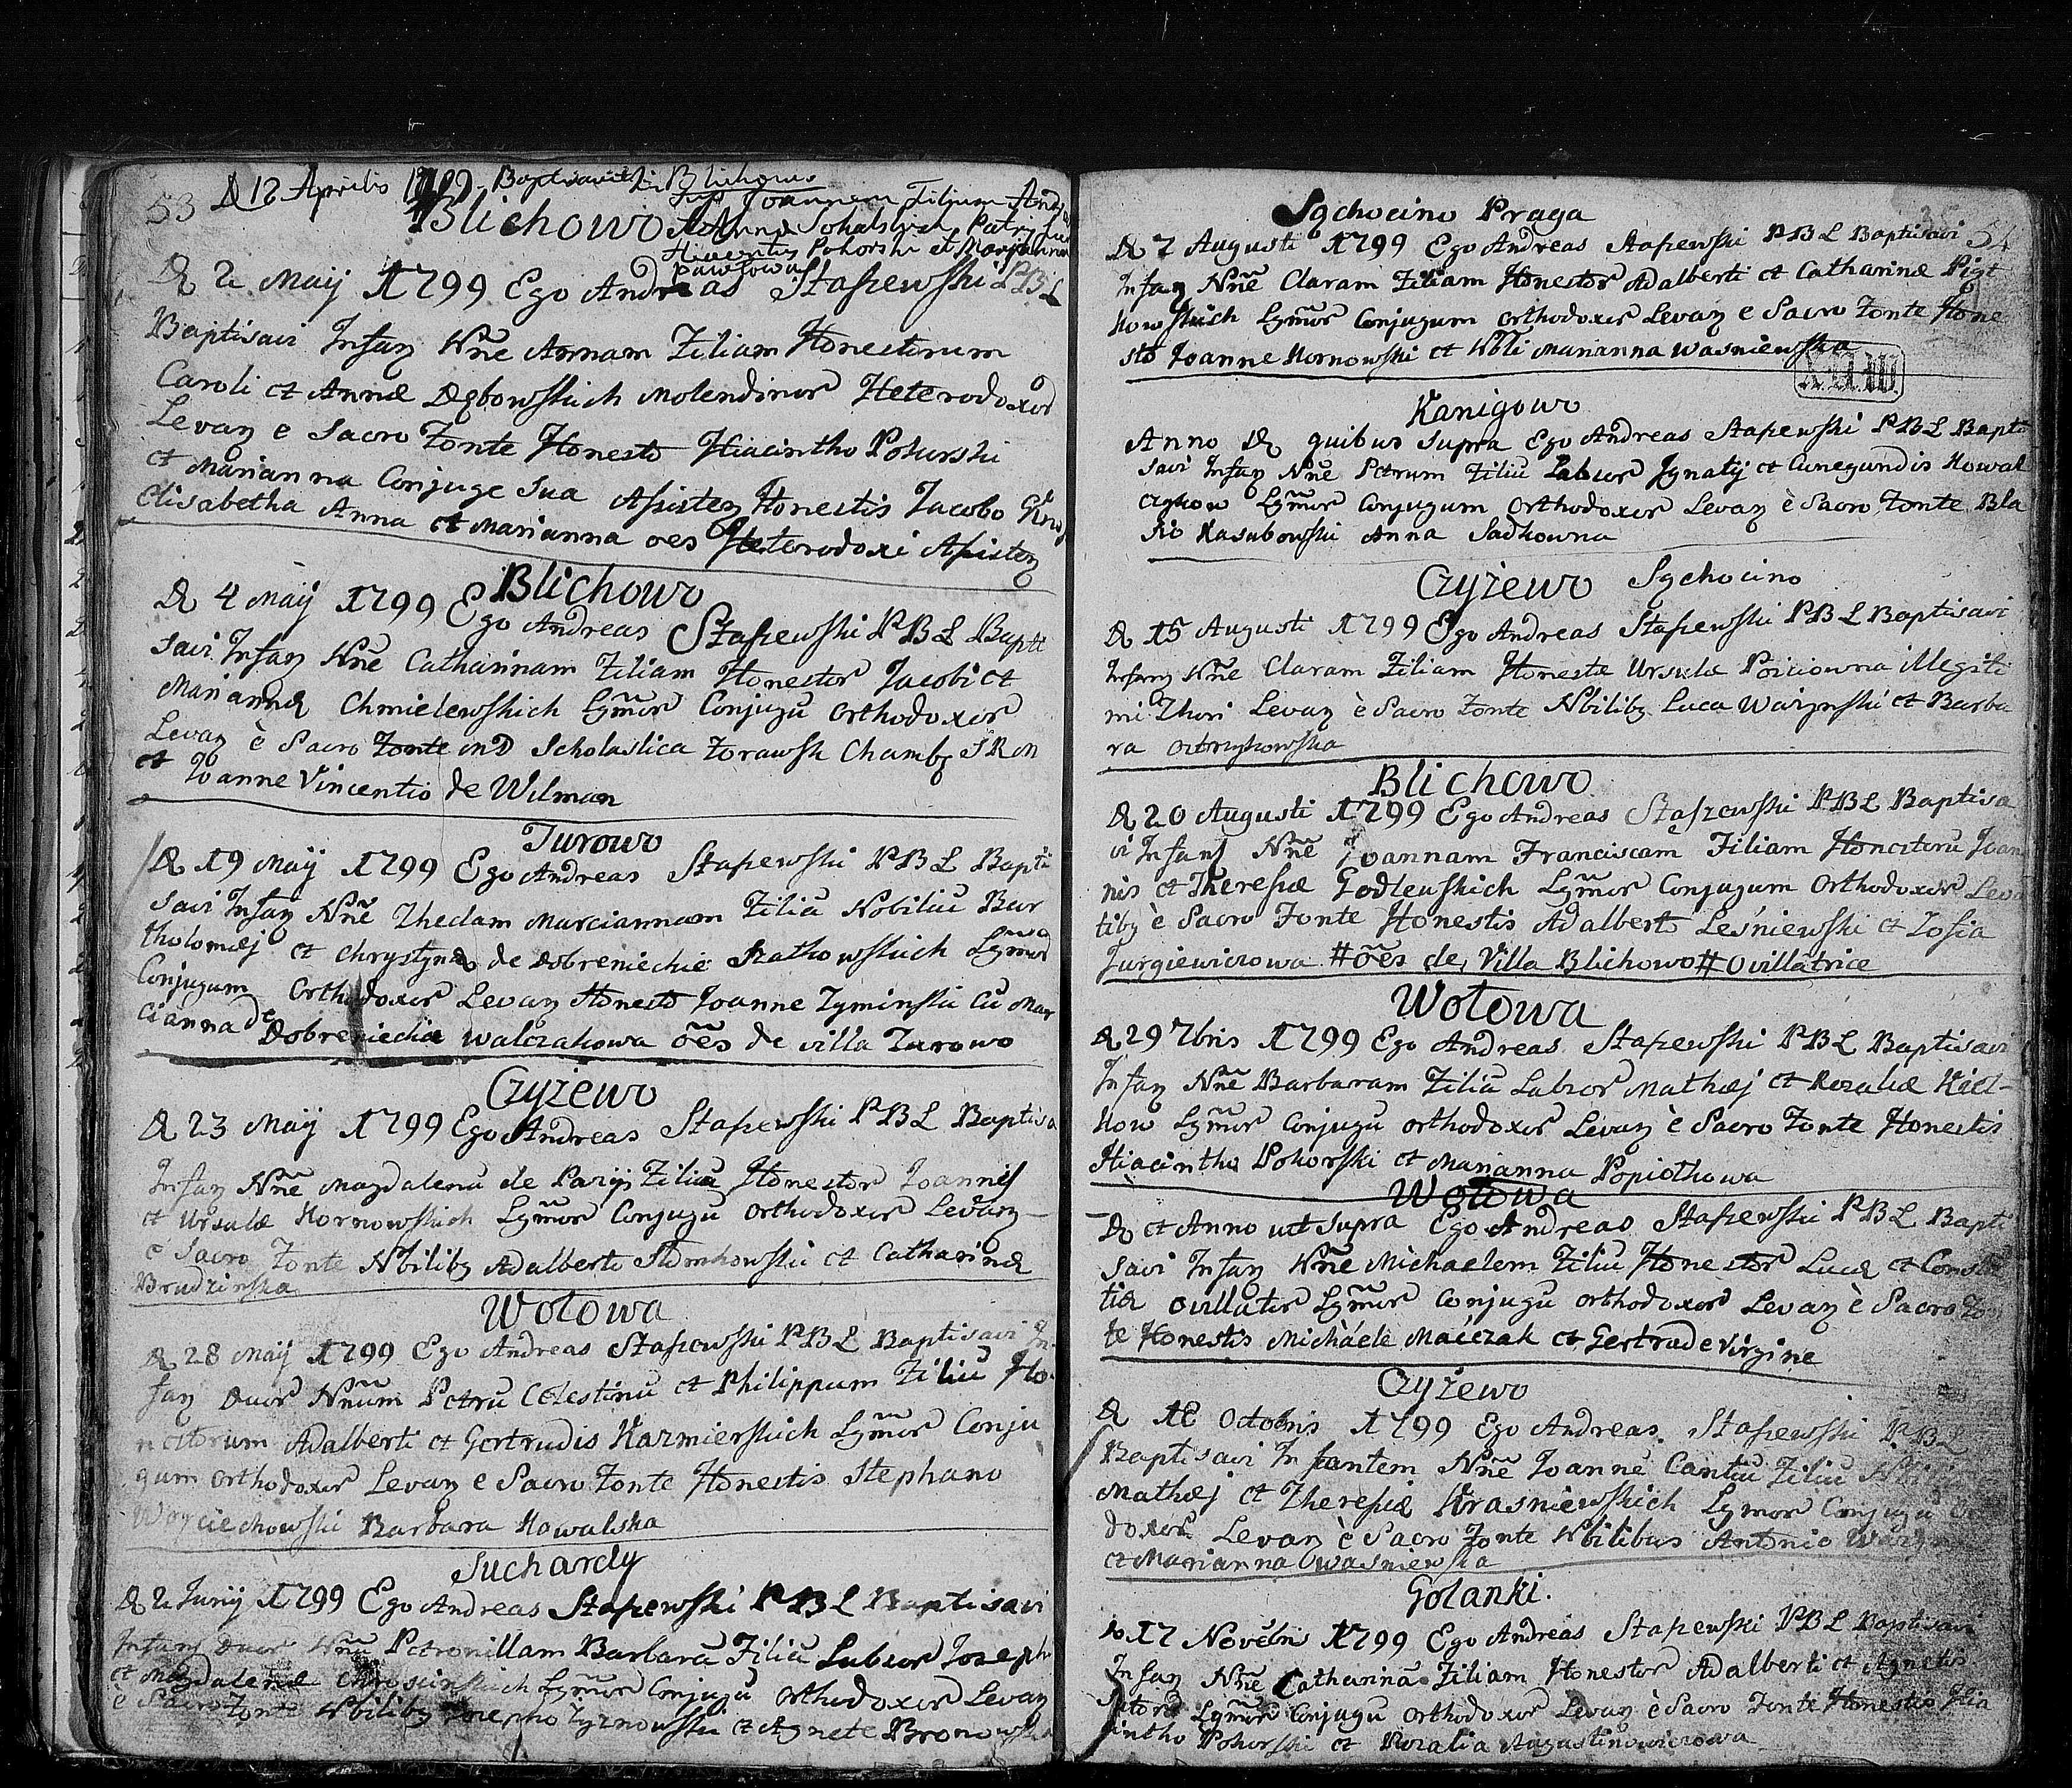 53 D 12 Aprilis 1799 Baptisavit Blichowo
Joannem Filium
Blichowo Anna Sokalskich
Pokorski et Marjanna
D 2 Maij 1799 Ego Andreas Staszewski PBL
Baptisavi Infan Nñe Annam Filiam Honestorum
Caroli et Annæ Dębowskich Molendinor Heterodoxor
Levan e Sacro Fonte Honesto Hiacintho Pokorski
et Marianna Conjuge Sua Assisten Honestis Jacobo
Elisabetha Anna et Marianna oes Heterodoxi Assisten
Blichowo
D 4 Maij 1799 Ego Andreas Staszewski PBL Bapti
savi Infan Nñe Catharinam Filiam Honestor Jacobi et
Mariannæ Chmielewskich Lgmor Conjugu Orthodoxor
Levan è Sacro Fonte MD Scholastica Zorawsk Chamb SRM
et Joanne Vincentio de Wilman
Turowo
D 19 Maij 1799 Ego Andreas Staszewski PBL Bapti
savi Infan Nñe Theclam Marciannam Filiã Nobiliũ Bar
tholomæj et Chrystynæ de Dobreniechie Rathowskich Lgmor
Conjugum Orthodoxor Levan Honesto Joanne Zyminski cũ Mar
cianna de Dobreniechie Walczakowa oẽs de villa Turowo
Czyżewo
D 23 Maij 1799 Ego Andreas Staszewski PBL Baptisa
Infan Nñe Magdalenã de Pazijs Filiã Honestor Joannis
et Ursulæ Kornowskich Lgmor Conjugũ Orthodoxor Levan
è Sacro Fonte Nbilibg Adalberto Slomkowski et Catharinæ
Brudzinska
Wolowa
D 28 Maij 1799 Ego Andreas Staszewski PBL Baptisavi In
fan Duor Nñum Petrũ Celestinũ et Philippum Filiũ Ho
nestorum Adalberti et Gertrudis Kazmierskich Lgmor Conju
gum Orthodoxor Levan e Sacro Fonte Honestis Stephano
Woyciechowski Barbara Kowalska
Suchardy
D 2 Junij 1799 Ego Andreas Staszewski PBL Baptisavi
Infan Duor Nñu Petronillam Barbarã Filiã Labror Josephi
et Magdalenæ Lgmor Conjugũ Orthodoxor Levan
è Sacro Fonte Nbilibg Josepho Zyznowski et Agnete
Sąchocino Praga
D 7 Augusti 1799 Ego Andreas Staszewski PBL Baptisavi 54
Infan Nñe Claram Filiam Honestor Adalberti et Catharinæ Piąt
kowskich Lgmor Conjugum Orthodoxor Levan e Sacro Fonte Hone
sto Joanne Kornowski et Nbli Marianna Wasniewska
Kanigowo
Anno D quibus supra Ego Andreas Staszewski PBL Bapti
savi Infan Nñe Petrum Filiũ Labror Ignatij et Cunegundis Kowal
czykow Lgmor Conjugum Orthodoxor Levan è Sacro Fonte Bla
sio Kasubowski Anna Sadkowna
Czyżewo Sąchocino
D 15 Augusti 1799 Ego Andreas Staszewski PBL Baptisavi
Infan Nñe Claram Filiam Honestæ Ursulæ illegiti
mi Thori Levan è Sacro Fonte Nbilibg Luca et Barba
ra
Blichowo
D 20 Augusti 1799 Ego Andreas Staszewski PBL Baptisa
vi Infans Nñe Joannam Franciscam Filiam Honestoru Joan
nis et Theresiæ Godlewskich Lgmor Conjugum Orthodoxor Leva
tibg è Sacro Fonte Honestis Adalberto Leśniewski et Zofia
Jurgiewiczowa # oẽs de Villa Blichowo # Ovillatrice
Wolowa
D 29 7bris 1799 Ego Andreas Staszewski PBL Baptisavi
Infan Nñe Barbaram Filiã Labror Mathæj et Rozaliæ
kow Lgmor Conjugũ Orthodoxor Levan è Sacro Fonte Honestis
Hiacintho Pokorski et Marianna Popiolkowa
Wolowa
D et Anno ut supra Ego Andreas Staszewski PBL Bapti
savi Infan Nñe Michaelem Filiũ Honestor Lucæ et Constã
tiæ Ovillator Lgmor Conjugũ Orthodoxor Levan è Sacro Fon
te Honestis Michaele Maiczak et Gertrude Virgine
Czyżewo
D 18 Octobris 1799 Ego Andreas Staszewski PBL
Baptisavi Infantem Nñe Joannẽ Cantiũ Filiũ
Mathæj et Theresiæ Krasniewskich Lgmor Conjugũ
doxor Levan è Sacro Fonte Nbilibus Antonio
et Marianna Wasniewska
Golanki.
D 17 Novẽbris 1799 Ego Andreas Staszewski PBL Baptisavi
Infan Nñe Catharinã Filiam Honestor Adalberti et Agnetis
Lgmor Conjugũ Orthodoxor Levan è Sacro Fonte Honestis Hia
cintho Pokorski et Rozalia Augustinowiczowa